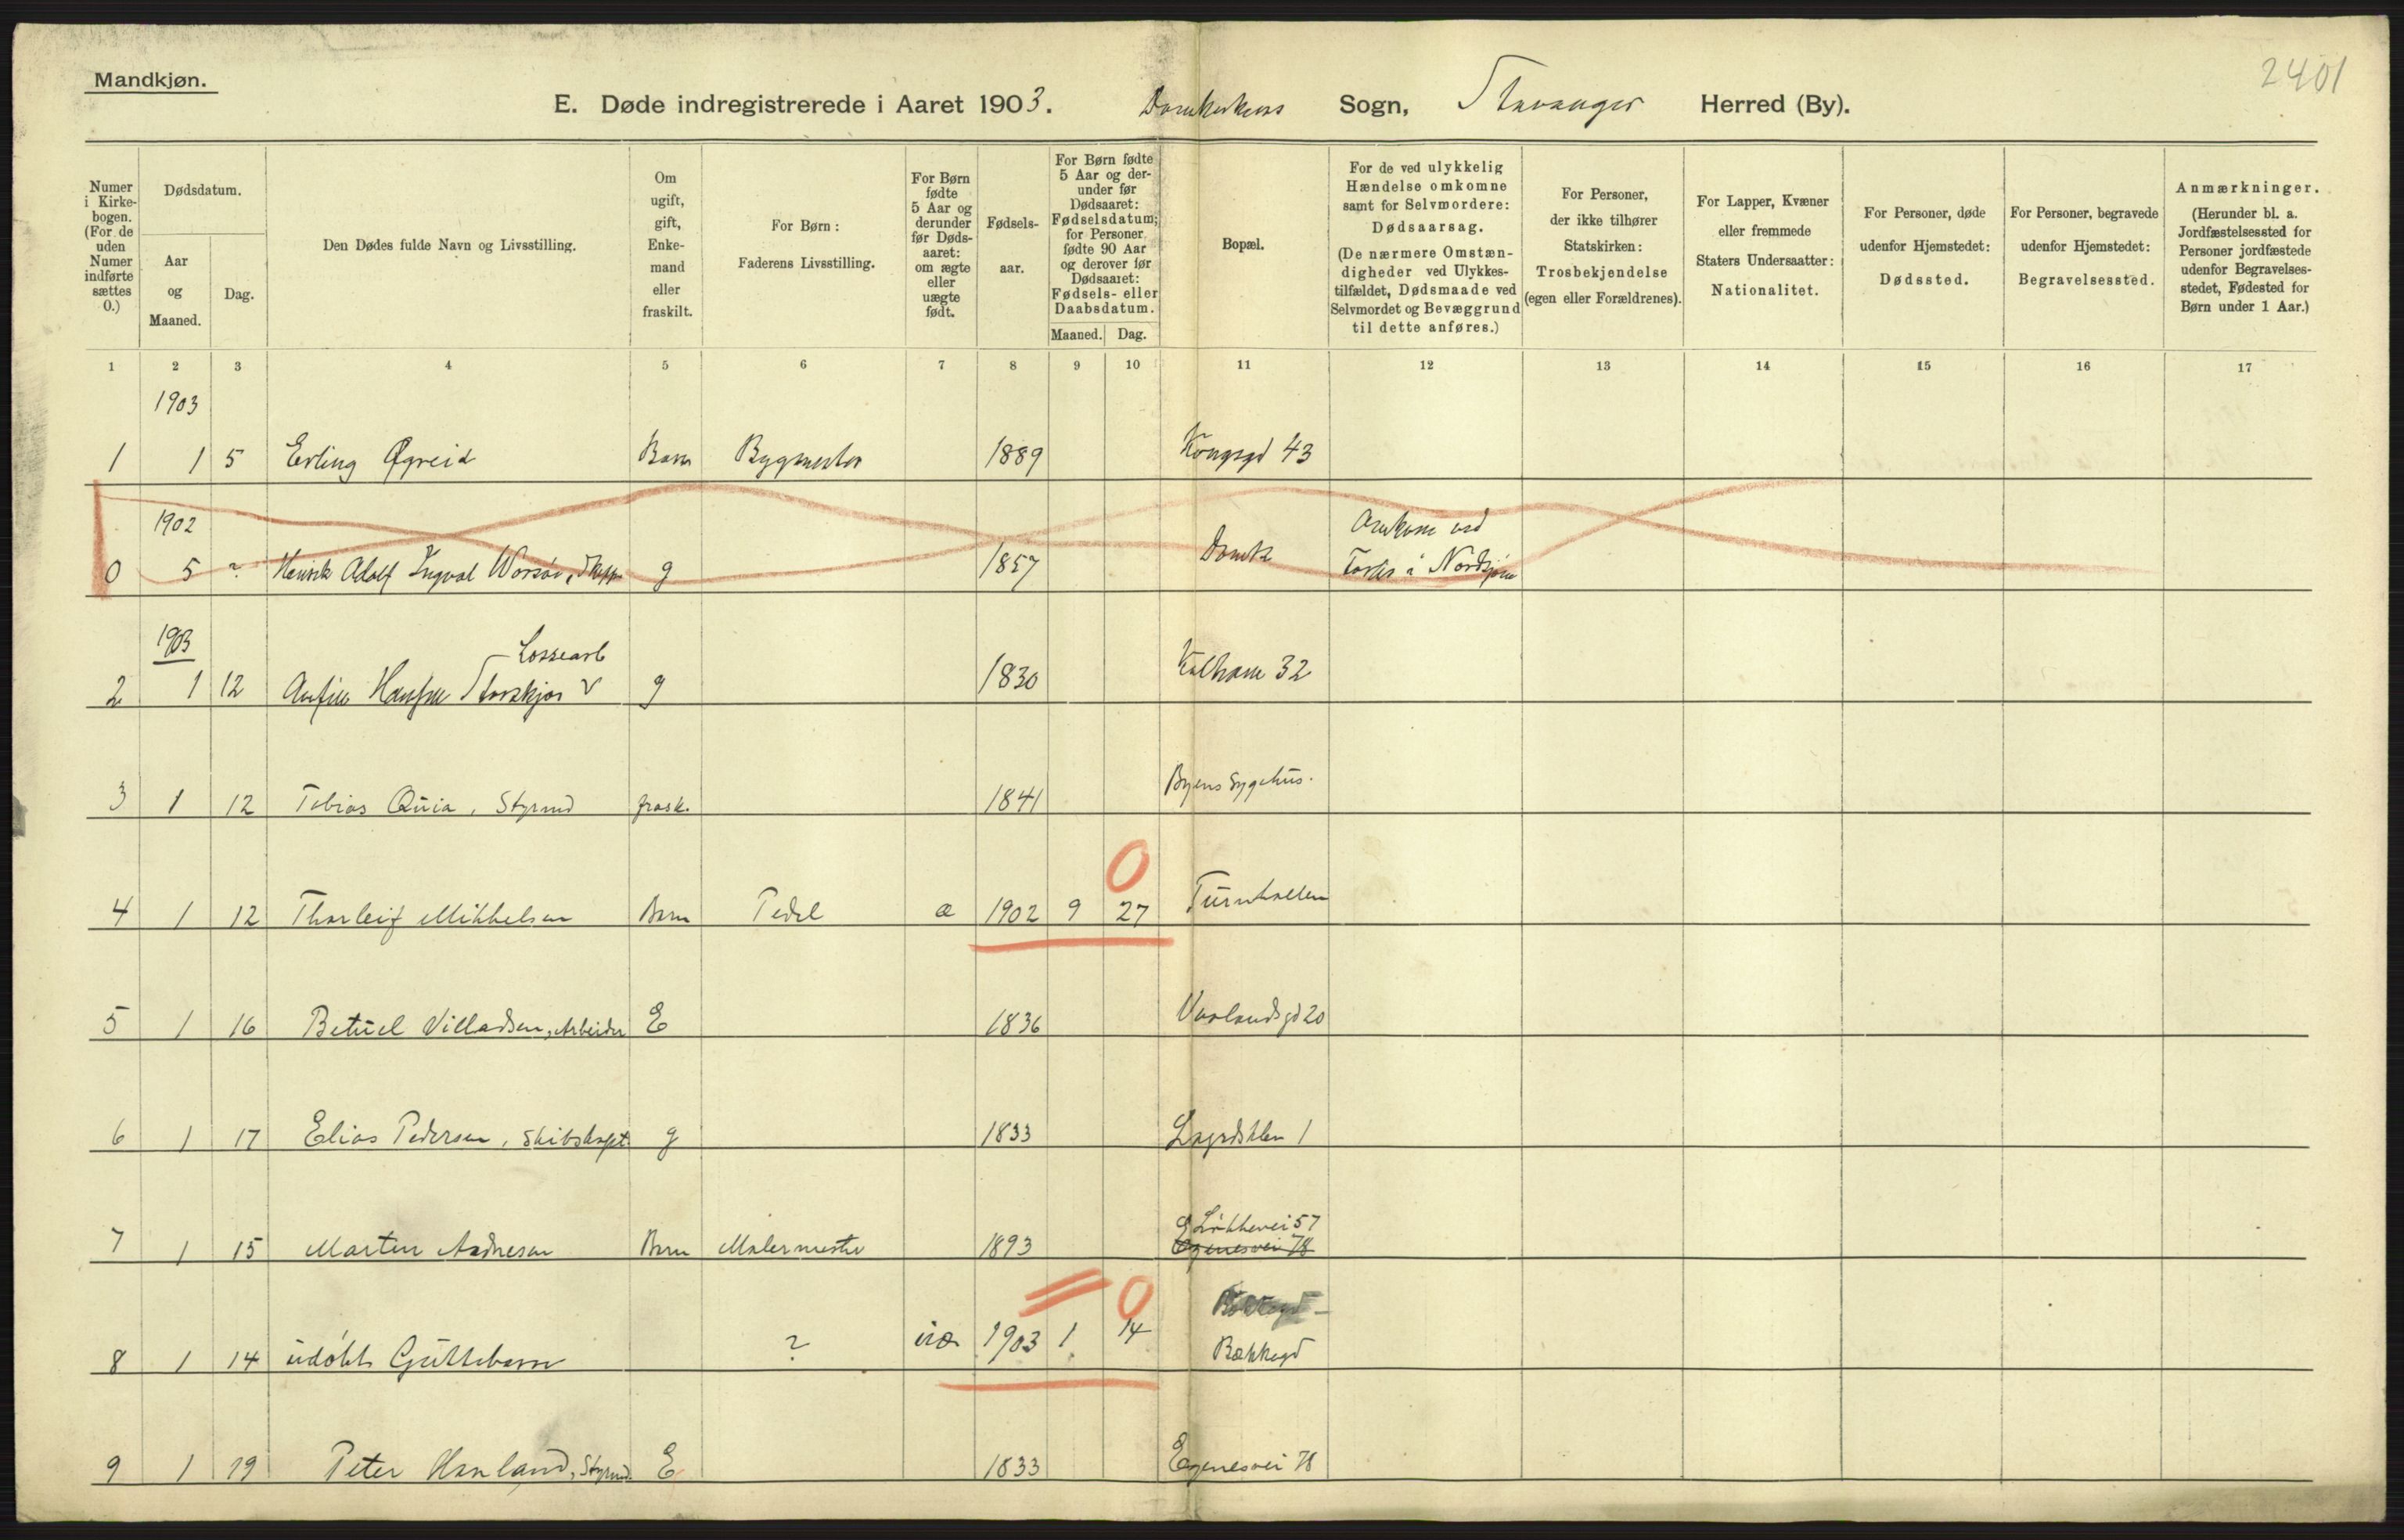 2401
Mandkjøn.
E. Døde indregistrerede i Aaret 1903. Domkirkens Sogn, Stavanger Herred (By).
Numer
i Kirke-
bogen.
(For de
uden
Numer
indførte
sættes
0.)
Dødsdatum.
Aar
og
Maaned.
Dag.
Den Dødes fulde Navn og Livsstilling.
Om
ugift,
gift,
Enke-
mand
eller
fraskilt.
For Børn:
Faderens Livsstilling.
For Børn
fødte
5 Aar og
derunder
før Døds-
aaret:
om ægte
eller
uægte
født.
Fødsels-
aar.
For Børn fødte
5 Aar og der-
under før
Dødsaaret:
Fødselsdatum;
for Personer
fødte 90 Aar
og derover før
Dødsaaret:
Fødsels- eller
Daabsdatum.
Maaned. Dag.
Bopæl.
For de ved ulykkelig
Hændelse omkomne
samt for Selvmordere:
Dødsaarsag.
(De nærmere Omstæn-
digheder ved Ulykkes-
tilfældet, Dødsmaade ved
Selvmordet og Bevæggrund
til dette anføres.)
For Personer,
der ikke tilhører
Statskirken:
Trosbekjendelse
(egen eller Forældrenes).
For Lapper, Kvæner
eller fremmede
Staters Undersaatter:
Nationalitet.
For Personer, døde
udenfor Hjemstedet:
Dødssted.
For Personer, begravede
udenfor Hjemstedet:
Begravelsessted.
Anmærkninger.
(Herunder bl. a.
Jordfæstelsessted for
Personer jordfæstede
udenfor Begravelses-
stedet, Fødested for
Børn under 1 Aar.)
1 2 3 4 5 6 7 8 9 10 11 12 13 14 15 16 17
1903
1 1 5 Erling Øgreid Barn Bygmester 1889 Kongsgd 43
1902 Omkom ved
0 5 ? Henrik Adolf Ingval g 1857 Domk i Nordsjøen
1903
Lossearb
2 1 12 Hansen Storskjor g 1830 Kalhavn 32
3 1 12 Tobias Qvia, Styrmd frask. 1841 Byens Sygehus.
0
4 1 12 Thorleif Mikkelsen Barn Pedel æ 1902 9 27 Turnhallen
5 1 16 Betuel Villadsen, Arbeider E 1836 Vaalandsgd 20
6 1 17 Elias Pedersen, Skibskapt. g 1833 Lagårdsklev 1
Løkkevei 57
7 1 15 Morten Andresen Barn Malermester 1893 Egenesvei 78
0
8 1 14 udøbt Guttebarn ? uæ 1903 1 14 Bækkegd
9 1 19 Peter Haaland, Styrmd. E 1833 Egenesvei 78